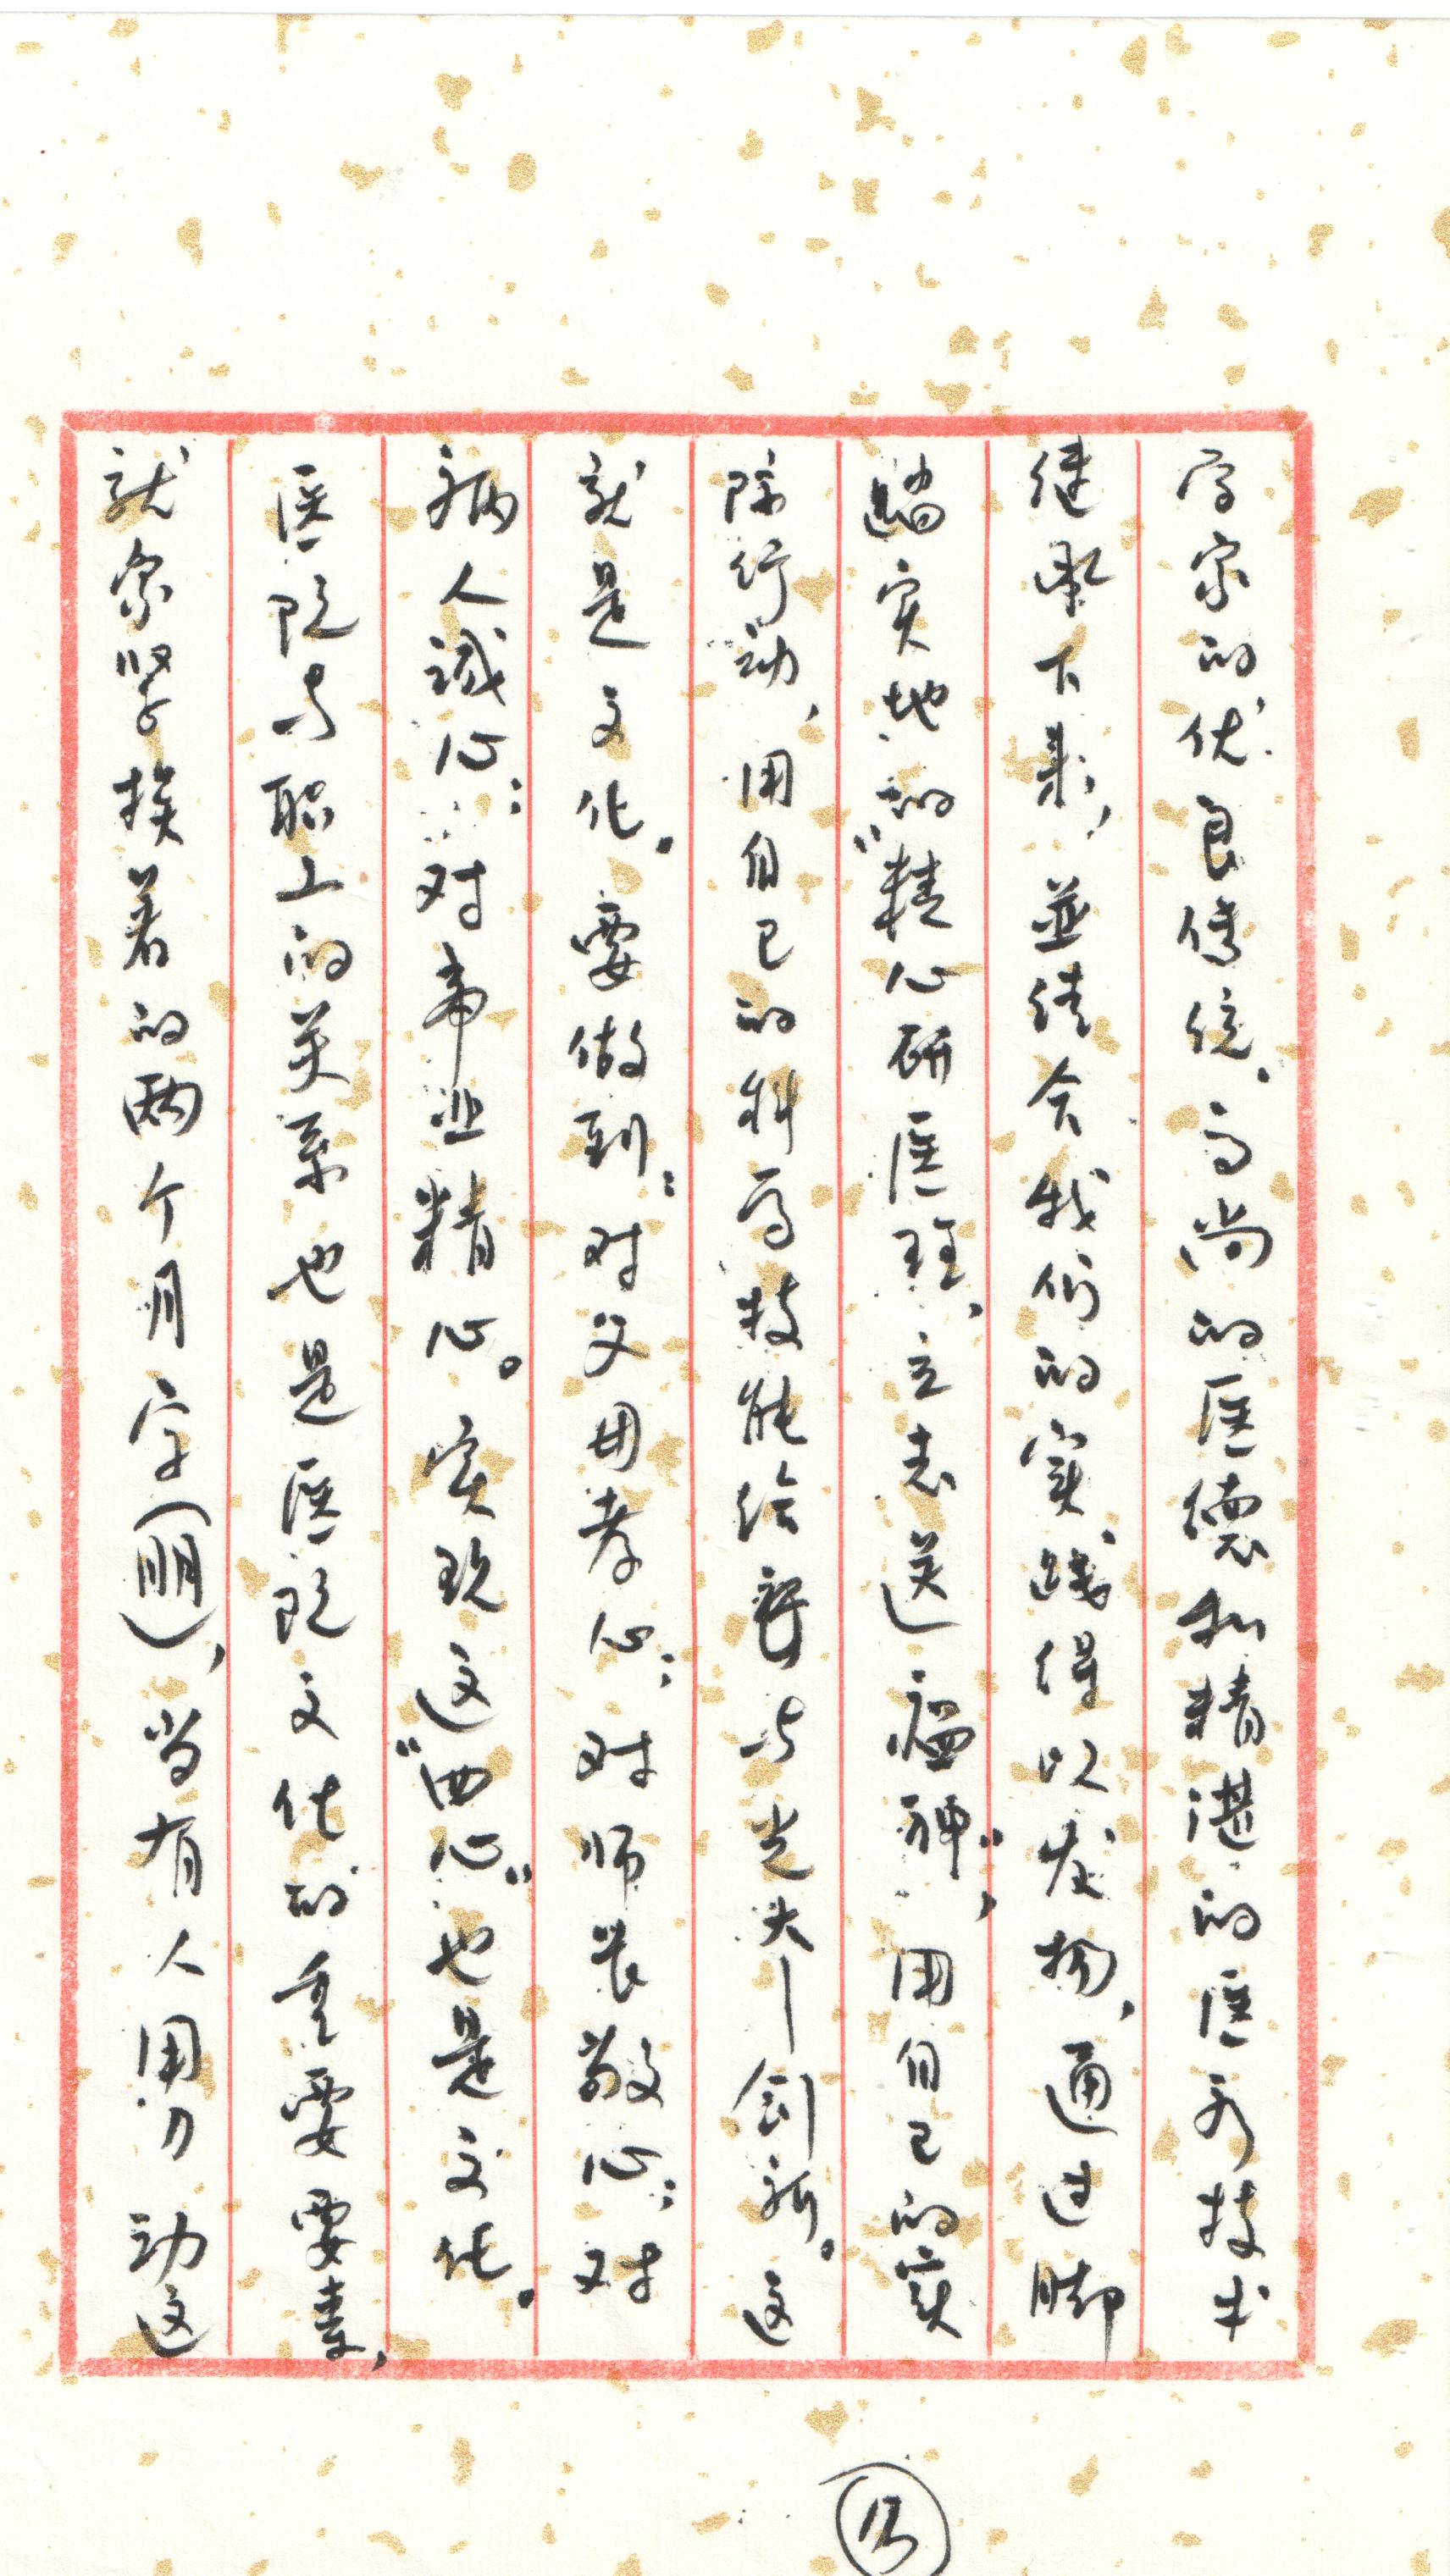 字家的优良传统。高尚的医德和精湛的医疗技术
继承下来，並结合我们的实践得以发扬，通过脚
踏实地的“精心研医理，立志送瘟神”，用自己的实
际行动，用自己的科学技能给与光大—创新。这
就是文化。要做到：对父母孝心；对师长敬心；对
病人诚心；对事业精心。实现这“四心”也是文化。
医院与职工的关系也是医院文化的重要要素，
就象紧挨着的两个月字（朋），当有人用力动这